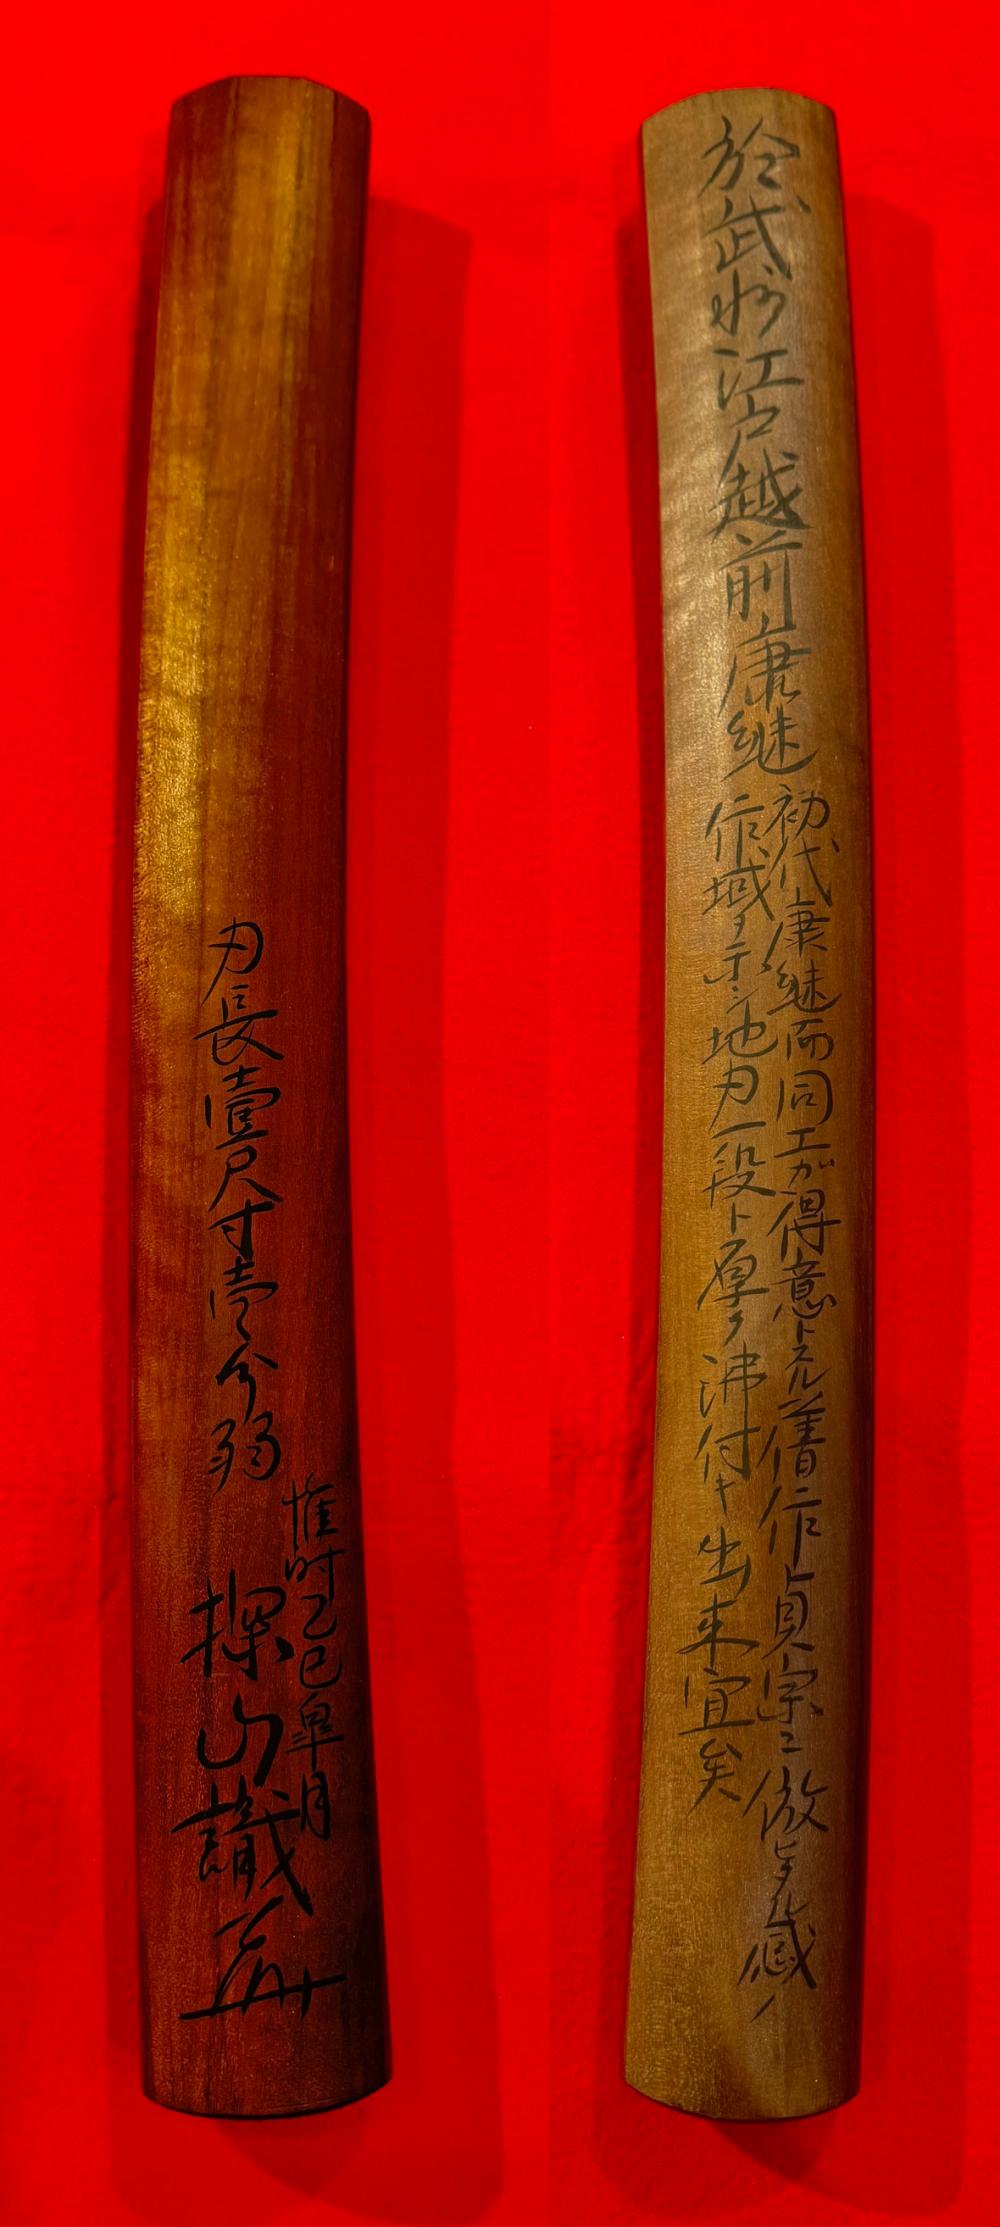 於武州江戸越前康継
初代康継而同工ガ得意トスル著作貞宗ニ倣ヒタル
作域ヲ示シ地刃一段ト厚ク沸付キ出来宜矣
刃長壹尺寸壱分弱
惟时乙巳皐月
探山識